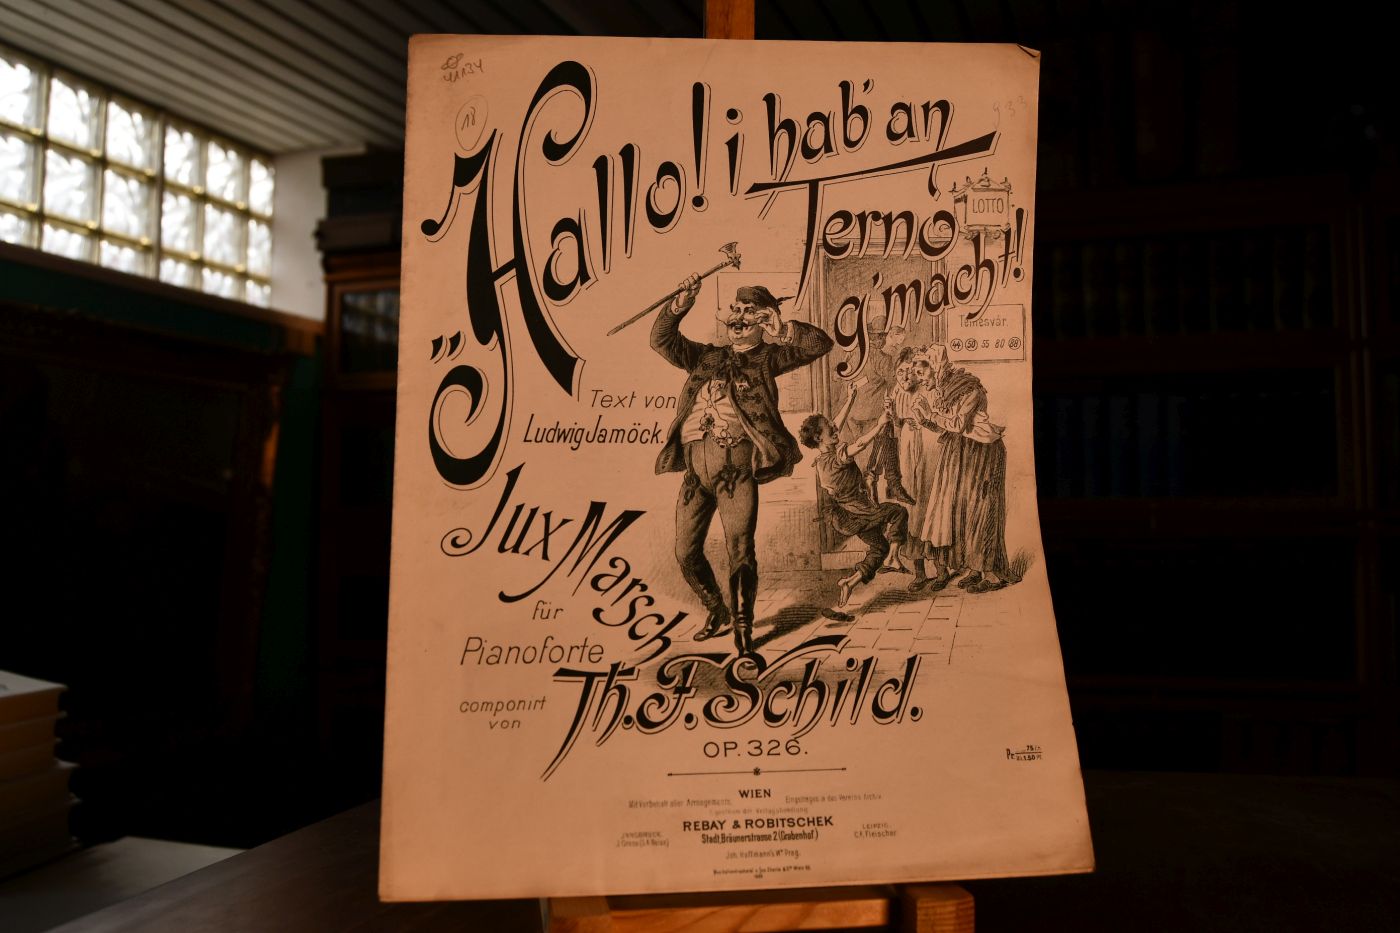 41134
18
933
„Hallo! i hab' an
Terno
g'macht!
LOTTO
Temesvár.
44 50 55 80 88
Text von
Ludwig Jamöck.
Jux Marsch
für
Pianoforte
componirt
von
Th. F. Schild.
OP. 326.
WIEN
Mit Vorbehalt aller Arrangements. Eingetragen in das Vereins Archiv.
Eigenthum der Verlagshandlung
REBAY & ROBITSCHEK
Stadt, Bräunerstrasse 2 (Grabenhof.)
INNSBRUCK.
LEIPZIG.
C.F. Fleischer
Joh. Hoffmann's Wwe Prag.